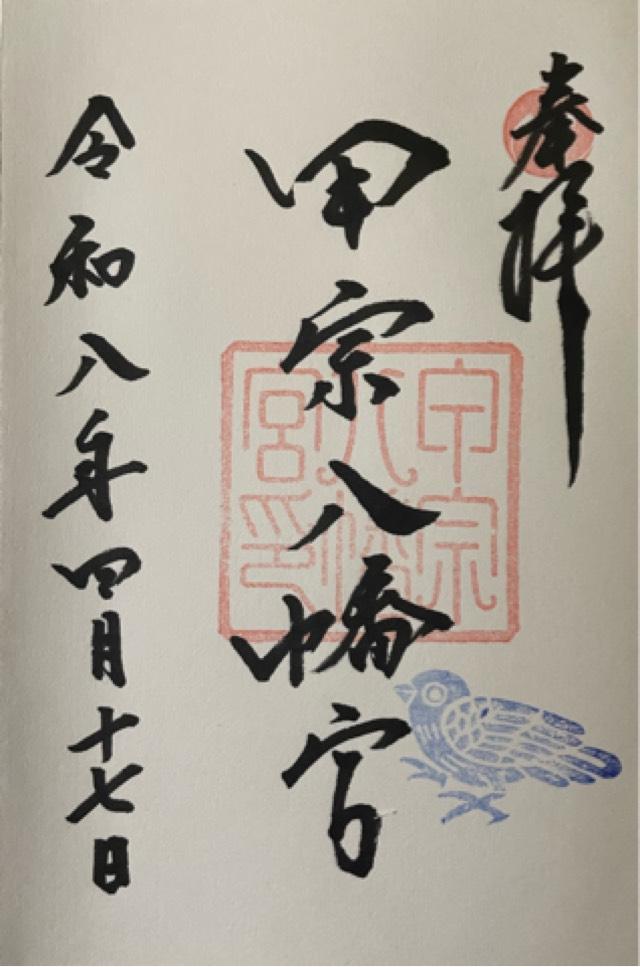 奉拝
甲宗八幡宮
甲宗八幡宮印
令和八年四月十七日